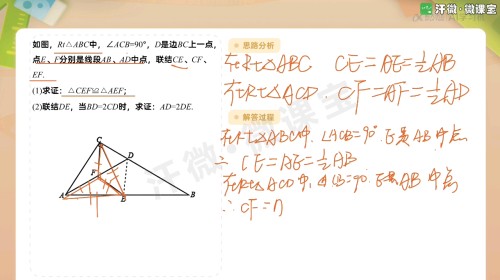 汗微·微课堂
如图，Rt△ABC中，∠ACB=90°，D是边BC上一点，
点E、F分别是线段AB、AD中点，联结CE、CF、
EF.
(1)求证：△CEF≌△AEF；
(2)联结DE，当BD=2CD时，求证：AD=2DE.
思路分析
在Rt△ABC CE=AE=½AB
在Rt△ACD. CF=AF=½AD
解答过程
在Rt△ABC中. ∠ACB=90° E是AB中点
∴ CE=AE=½AB
在Rt△ACD中. ∠ACB=90. E是AB中点
∴ CF=
C
D
F
A
E
B
汗微·微课堂